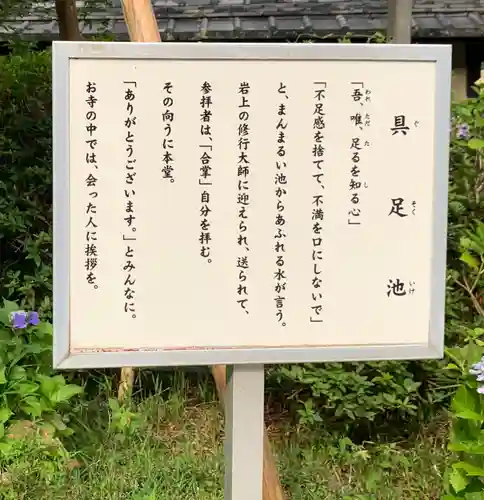 具足池
ぐ そく いけ
「吾、唯、足るを知る心」
われ ただ た し
「不足感を捨てて、不満を口にしないで」
と、まんまるい池からあふれる水が言う。
岩上の修行大師に迎えられ、送られて、
参拝者は、「合掌」自分を拝む。
その向うに本堂。
「ありがとうございます。」とみんなに。
お寺の中では、会った人に挨拶を。